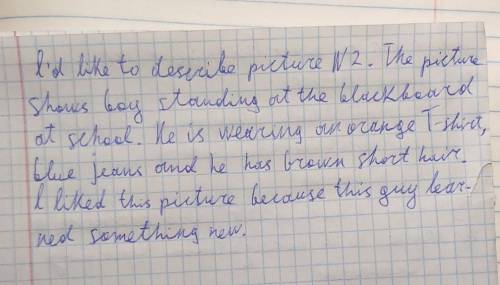 I'd like to describe picture N2. The picture
shows boy standing at the blackboard
at school. He is wearing an orange T-shirt,
blue jeans and he has brown short hair.
I liked this picture because this guy lear-
ned something new.